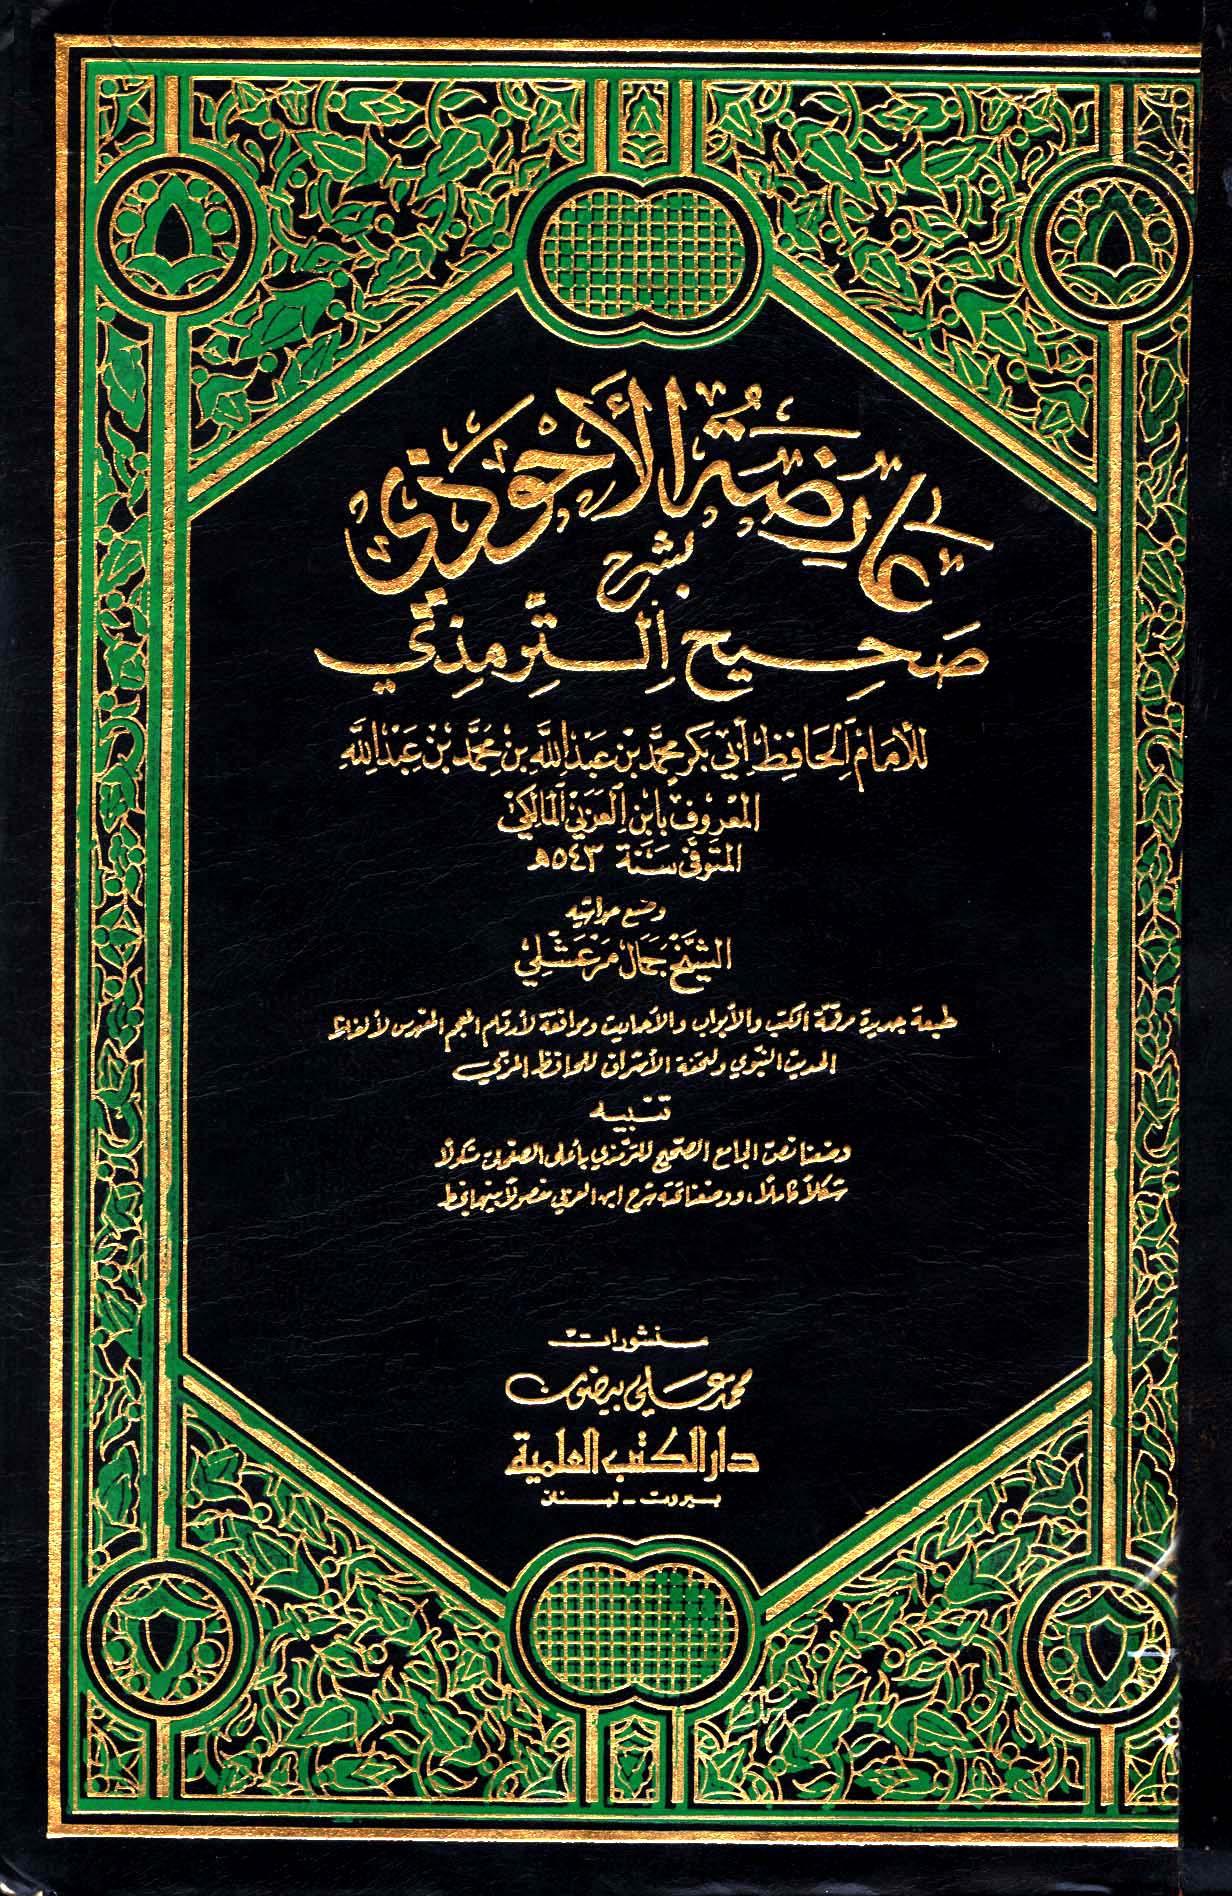 عَارِضَةُ الأَحْوَذِي
بشرح
صَحِيح التِّرمِذِيّ
للإمَام الحَافِظ أَبي بَكر محمَّد بْن عَبْد اللَّه بن محمَّد بْن عَبْد اللَّه
المعْرُوف بابْن العَرَبي المَالِكي
المتَوفّى سَنَة ٥٤٣هـ
وضع حواشيه
الشَّيْخ جَمَال مَرْعَشْلِي
طبعة جديدة مرقمة الكتب والأبواب والأحاديث وموافقة لأرقام المعجم المفهرس لألفاظ
الحديث النبوي ولتحفة الأشراف للحافظ المزي
تنبيه
وضعنا نص الجامع الصحيح للترمذي بأعلى الصفحات مشكولاً
شكلاً كاملاً، ووضعنا تحته شرح ابن العربي مفصولاً بينهما بخط
منشورات
محمد علي بيضون
دار الكتب العلمية
بيروت - لبنان